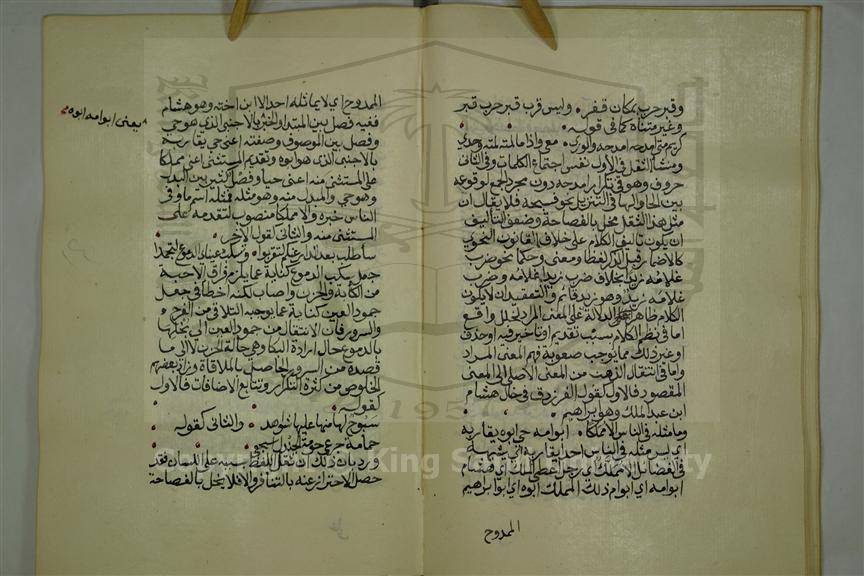 وقبر حرب بمكان قفر وليس قرب قبر حرب قبر
وغير متناه كما في قوله
كريم متى امدحه امدحه والورى معي واذا ما لمته لمته وحدي
ومنشأ الثقل في الاول نفس اجتماع الكلمات وفي الثاني
حروف وهو في تكرار امدحه دون مجرد الجمع لوقوعه
بين الحا والها في التنزيل نحو فسبحه فلا يقال ان
مثل هذا الثقل مخل بالفصاحة وضعف التأليف
ان يكون تاليف الكلام على خلاف القانون النحوي
كالاضمار قبل الذكر لفظا ومعنى وحكما نحو ضرب
غلامه زيدا بخلاف ضرب زيدا غلامه وضرب
غلامه زيد وهو زيد قايم والتعقيد ان لا يكون
الكلام ظاهر الدلالة على المعنى المراد لخلل واقع
اما في نظم الكلام بسبب تقديم او تاخير فيه او حذف
او غير ذلك مما يوجب صعوبة فهم المعنى المراد
واما في انتقال الذهن من المعنى الاصلي الى المعنى
المقصود فالاول كقول الفرزدق في خال هشام
ابن عبد الملك وهو ابراهيم
وما مثله في الناس الا مملكا ابو امه حي ابوه يقاربه
اي ليس مثله في الناس احد يقاربه اي يشبهه
في الفضائل الا مملكا اي رجل اعطي الملك اي هشام
ابو امه اي ابو ام ذلك المملك ابوه اي ابو ابراهيم
الممدوح
الممدوح اي لا يماثله احد الا ابن اخته وهو هشام
يعنى ابو امه ابوه
ففيه فصل بين المبتدا والخبر بالاجنبي الذي هو حي
وفصل بين الموصوف وصفته اعني حي يقاربه
بالاجنبي الذي هو ابوه وتقديم المستثنى اعني مملكا
على المستثنى منه اعني حيا وفصل كثير بين البدل
وهو حي والمبدل منه وهو مثله فمثله اسم ما وفي
الناس خبره والا مملكا منصوب لتقدمه على
المستثنى منه والثاني كقول الاخر
ساطلب بعد الدار عنكم لتقربوا وتسكب عيناي الدموع لتجمدا
جعل سكب الدموع كناية عما يلزم فراق الاحبة
من الكآبة والحزن واصاب لكنه اخطا في جعل
جمود العين كناية عما يوجبه التلاقي من الفرح
والسرور فان الانتقال من جمود العين الى بخلها
بالدموع حال ارادة البكا وهي حالة الحزن لا الى ما
قصده من السرور الحاصل بالملاقاة وزاد بعضهم
الخلوص من كثرة التكرار وتتابع الاضافات فالاول
كقوله
سبوح لها منها عليها شواهد والثاني كقوله
حمامة جرعى حومة الجندل اسجعي
ورد بان ذلك ان ثقل اللفظ بسببه على اللسان فقد
حصل الاحتراز عنه بالتنافر والا فلا يخل بالفصاحة